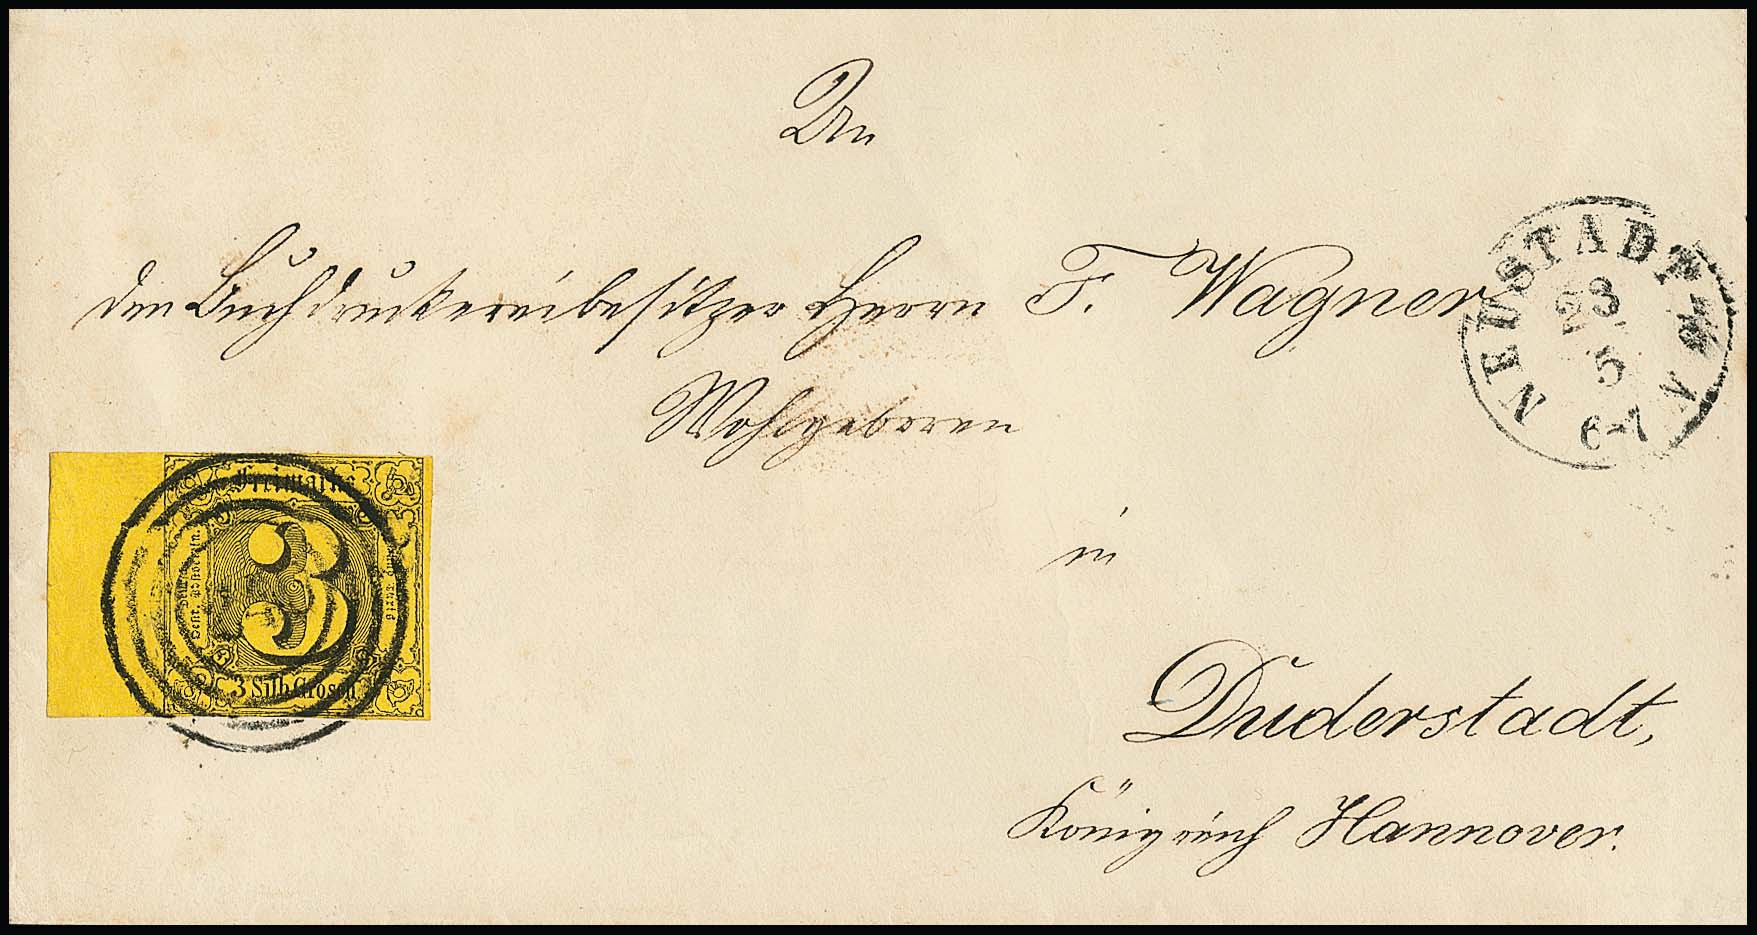 An
den Buchdruckereibesitzer Herrn F. Wagner
Wohlgeboren
in
Duderstadt,
Königreich Hannover.
NEUSTADT
23
5
6-7
Freimarke
3
3 Silb. Grosch.